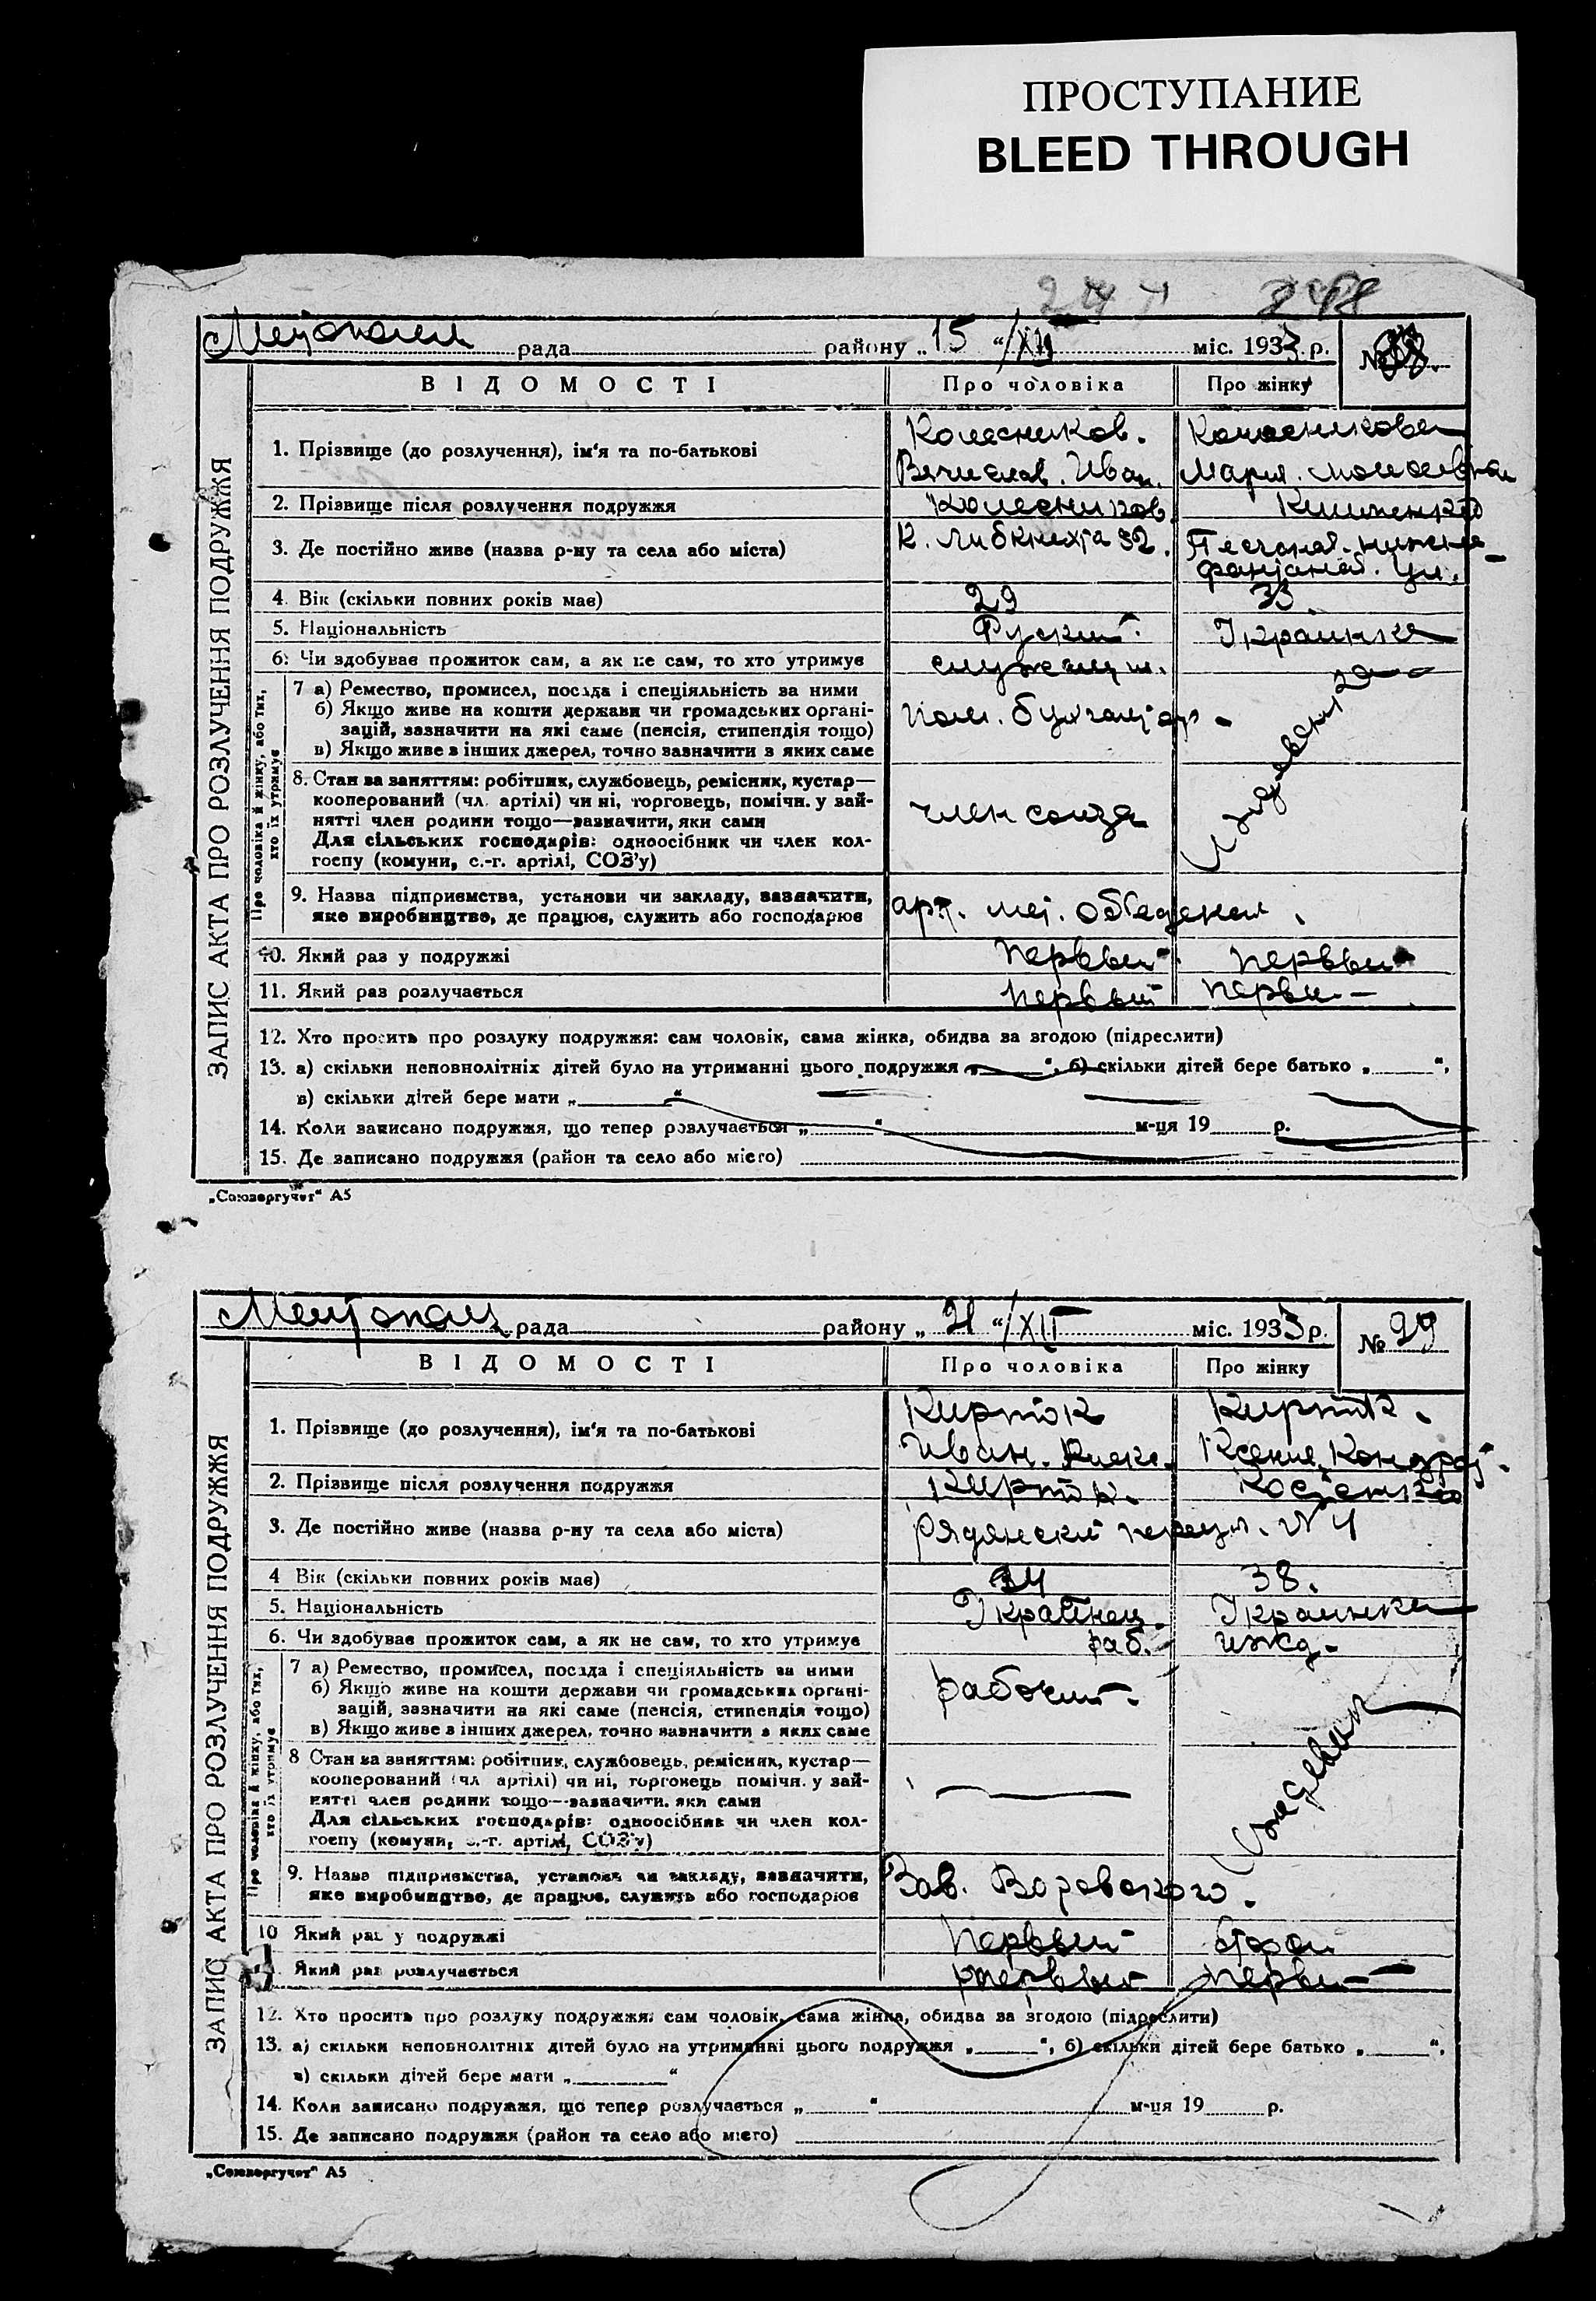 ПРОСТУПАНИЕ
BLEED THROUGH
248
рада району „15“/XII міс. 1933 р. №
ЗАПИС АКТА ПРО РОЗЛУЧЕННЯ ПОДРУЖЖЯ
ВІДОМОСТІ Про чоловіка Про жінку
1. Прізвище (до розлучення), ім'я та по-батькові Колесников. Колесникова
Иван. Мария.
2. Прізвище після розлучення подружжя Колесников
3. Де постійно живе (назва р-ну та села або міста) К. Либкнехта 32.
ул.
4. Вік (скільки повних років має) 29 33.
5. Національність Руский. Украинка
6. Чи здобуває прожиток сам, а як не сам, то хто утримує служащий.
Про чоловіка й жінку, або тих, хто їх утримує
7 а) Ремество, промисел, посада і спеціяльність за ними
б) Якщо живе на кошти держави чи громадських органі-
зацій, зазначити на які саме (пенсія, стипендія тощо) пом. бухгалтер
в) Якщо живе з інших джерел, точно зазначити з яких саме
8. Стан за заняттям: робітник, службовець, ремісник, кустар—
кооперований (чл. артілі) чи ні, торговець, помічн. у зай-
нятті член родини тощо—зазначити, яки сами член союза
Для сільських господарів: одноосібник чи член кол-
госпу (комуни, с.-г. артілі, СОЗ'у)
9. Назва підприємства, установи чи закладу, зазначити,
яке виробництво, де працює, служить або господарює арт.
10. Який раз у подружжі первый первый
11. Який раз розлучається первый первый
12. Хто просить про розлуку подружжя: сам чоловік, сама жінка, обидва за згодою (підреслити)
13. а) скільки неповнолітніх дітей було на утриманні цього подружжя „ “, б) скільки дітей бере батько „ “,
в) скільки дітей бере мати „ “
14. Коли записано подружжя, що тепер розлучається „ “ м-ця 19 р.
15. Де записано подружжя (район та село або місто)
„Союзоргучет“ А5
рада району „21“/XII міс. 1933 р. № 29
ЗАПИС АКТА ПРО РОЗЛУЧЕННЯ ПОДРУЖЖЯ
ВІДОМОСТІ Про чоловіка Про жінку
1. Прізвище (до розлучення), ім'я та по-батькові Кирток Кирток.
Иван. Алекс. Ксения. Кондрат.
2. Прізвище після розлучення подружжя Кирток.
3. Де постійно живе (назва р-ну та села або міста) Рядянский переул. № 4
4 Вік (скільки повних років має) 34 38.
5. Національність Украинец. Украинка
6. Чи здобуває прожиток сам, а як не сам, то хто утримує раб. ижд.
Про чоловіка й жінку, або тих, хто їх утримує
7 а) Ремество, промисел, посада і спеціяльність за ними
б) Якщо живе на кошти держави чи громадських органі- рабочий.
зацій, зазначити на які саме (пенсія, стипендія тощо)
в) Якщо живе з інших джерел, точно зазначити з яких саме
8 Стан за заняттям: робітник, службовець, ремісник, кустар—
кооперований (чл артілі) чи ні, торговець помічн. у зай-
нятті член родини тощо—зазначити, яки сами
Для сільських господарів: одноосібник чи член кол-
госпу (комуни, с.-г. артілі, СОЗ'у)
9. Назва підприємства, установи чи закладу, зазначити,
яке виробництво, де працює, служить або господарює Зав. Воровского.
10 Який раз у подружжі первый второй
Який раз розлучається первый первый
12. Хто просить про розлуку подружжя: сам чоловік, сама жінка, обидва за згодою (підреслити)
13. а) скільки неповнолітніх дітей було на утриманні цього подружжя „ “, б) скільки дітей бере батько „ “,
в) скільки дітей бере мати „ “
14. Коли записано подружжя, що тепер розлучається „ “ м-ця 19 р.
15. Де записано подружжя (район та село або місто)
„Союзоргучет“ А5